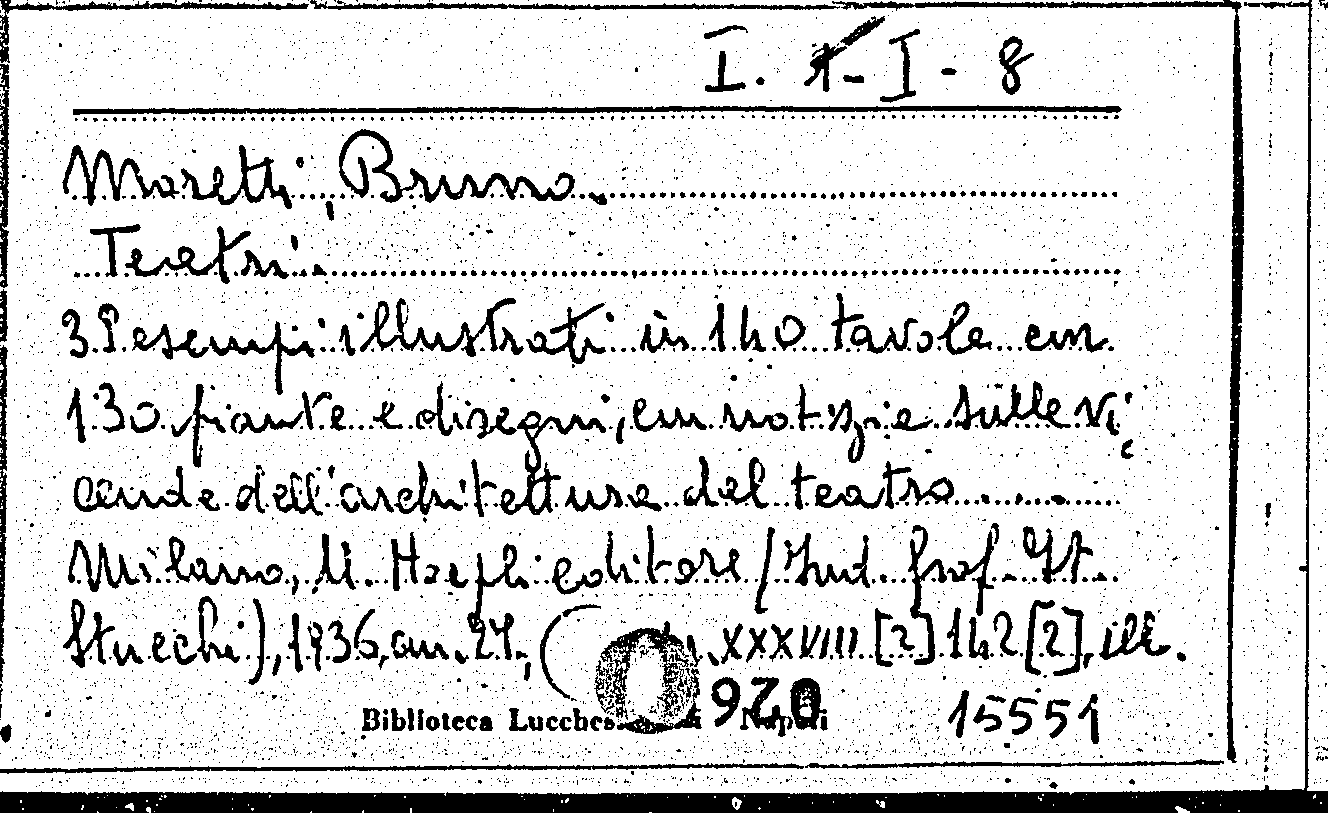 I. 1- I - 8
Moretti, Bruno.
Teatri.
esempi illustrati in 140 tavole con
130 piante e disegni, con notizie sulle vi
cende dell'architettura del teatro......
Milano, U. Hoepli editore (Ind. graf. It.
Stucchi), 1936, cm. 27, ( XXXVIII [2] 142 [2], ill.
Biblioteca 920 15551